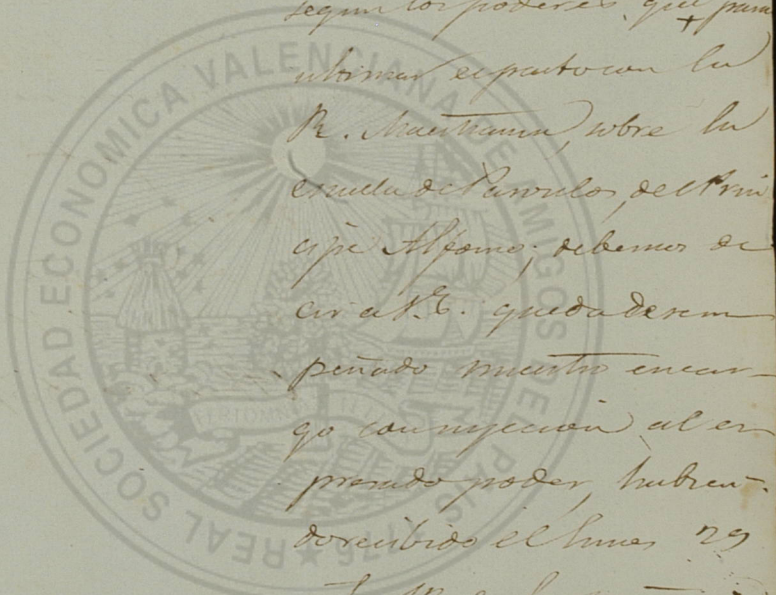 segun los poderes que para
ultimar el pacto con la
R. Maestranza, sobre la
escuela de Parvulos, del Prin
cipe Alfonso; debemos de
cir a V.E. queda desem
peñado nuestro encar-
go con sujecion al es
presado poder, habien-
do recibido el lunes 29
REAL SOCIEDAD ECONOMICA VALENCIANA DE AMIGOS DEL PAIS 1776
FERT OMNIA TELLUS